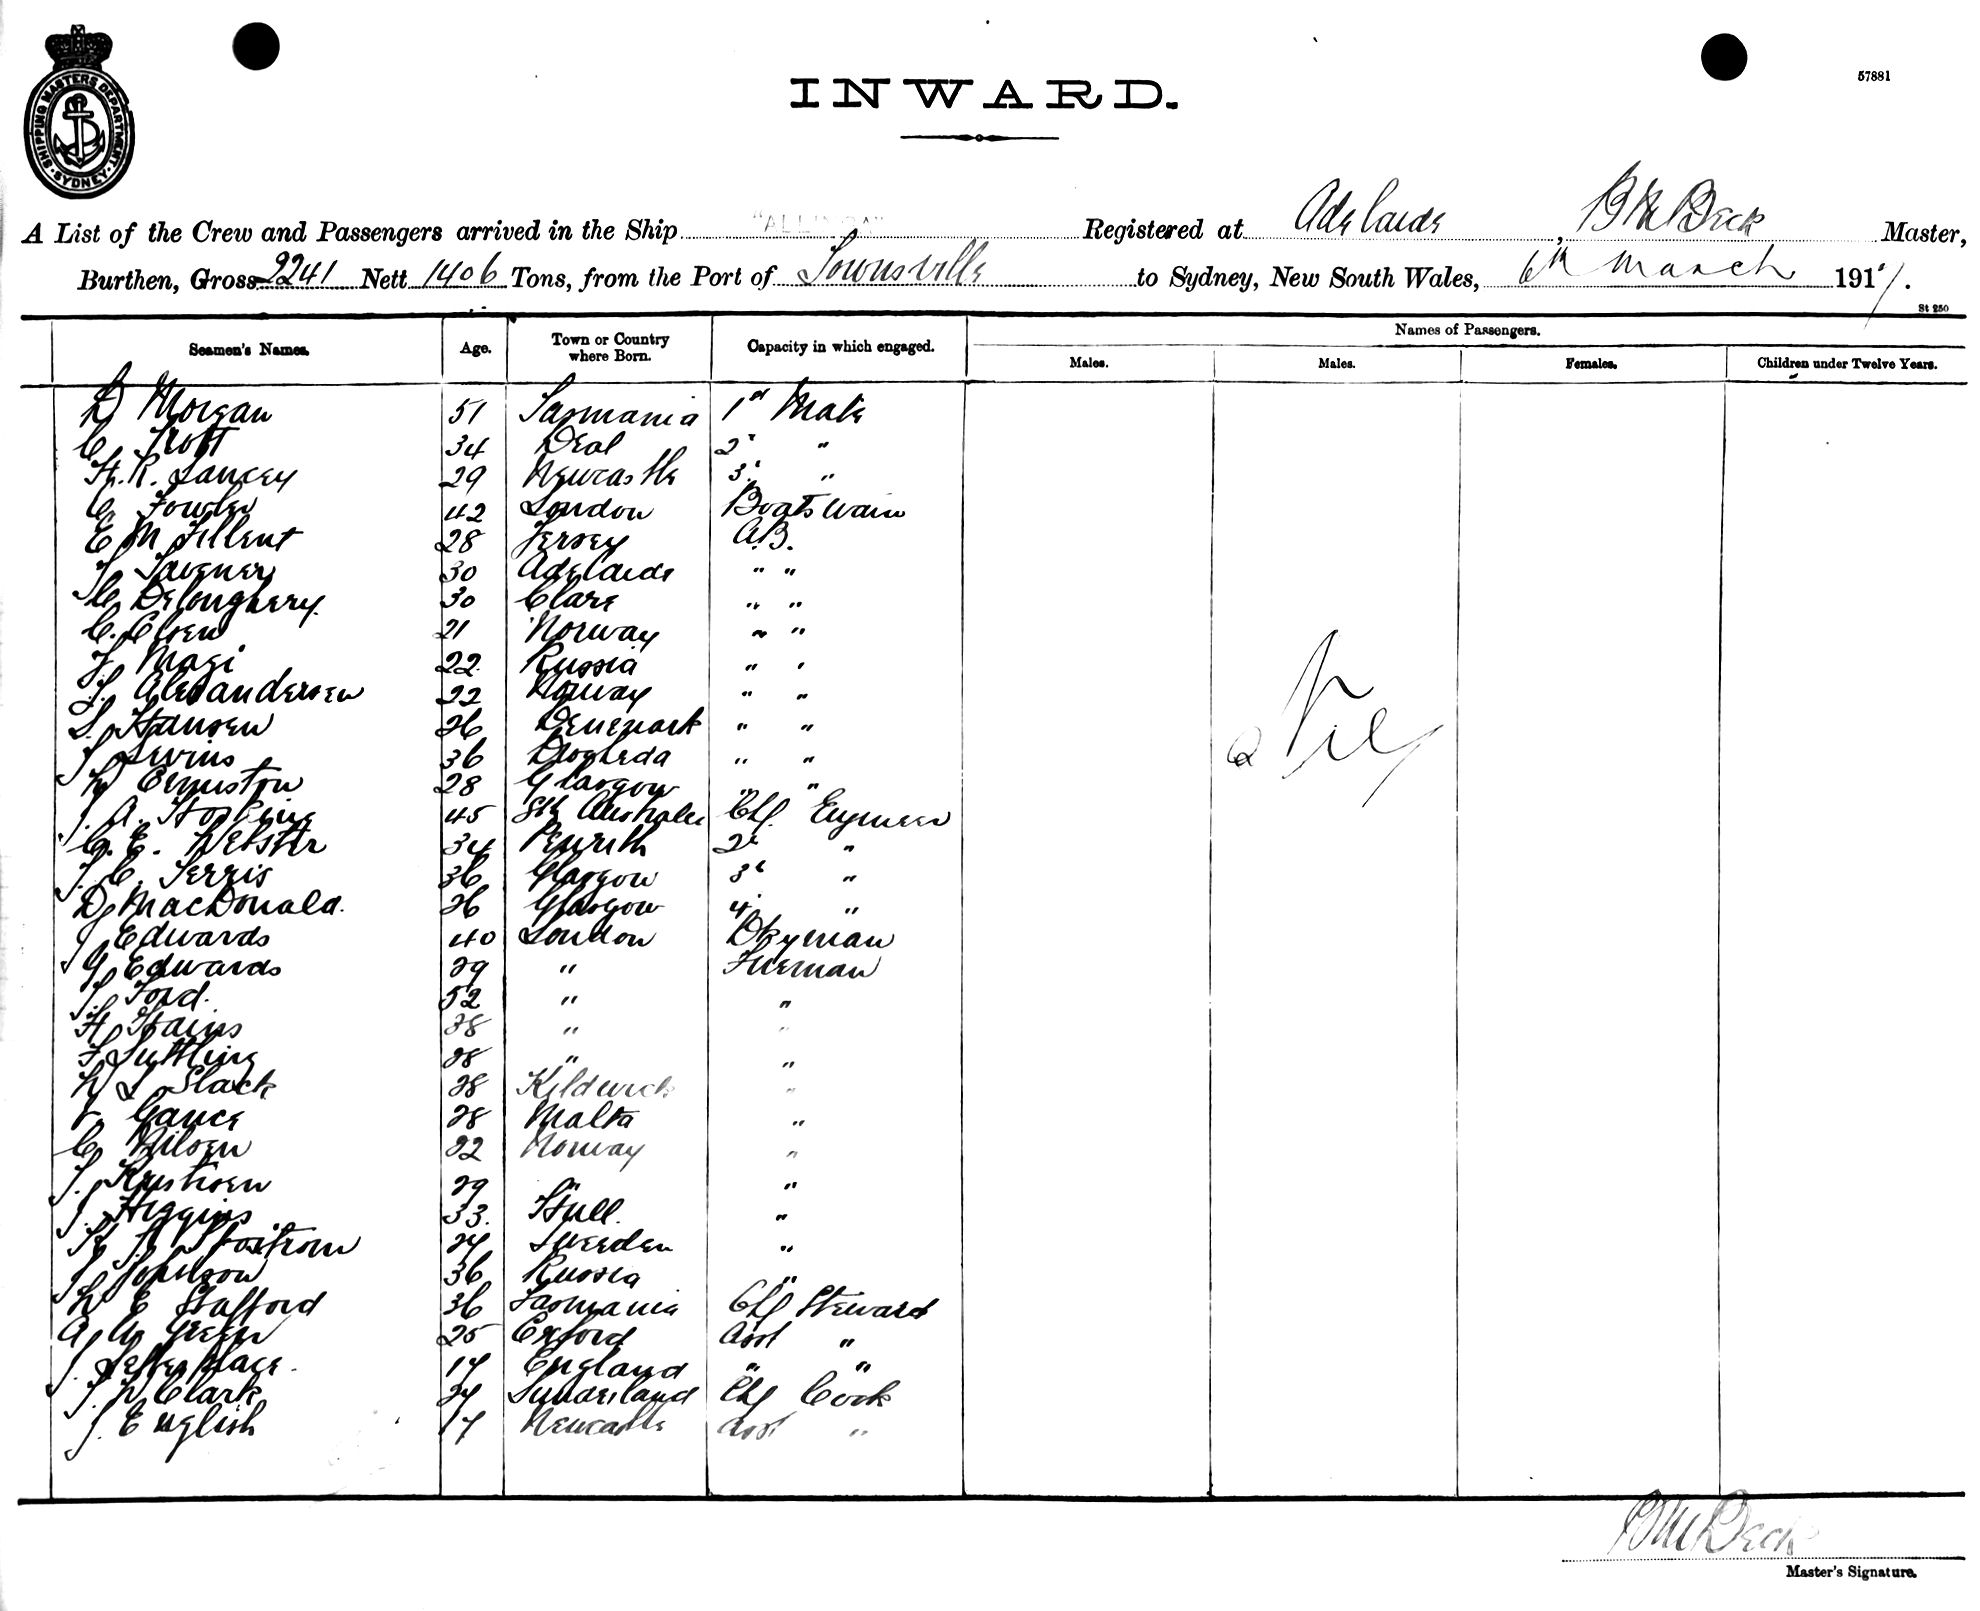 SHIPPING MASTERS DEPARTMENT · SYDNEY ·
57881
INWARD.
A List of the Crew and Passengers arrived in the Ship "ALLINGA" Registered at Adelaide, B M Beck Master,
Burthen, Gross 2241 Nett 1406 Tons, from the Port of Townsville to Sydney, New South Wales, 6th March 1911.
St 250
Seamen's Names. Age. Town or Country where Born. Capacity in which engaged. Names of Passengers.
Males. Males. Females. Children under Twelve Years.
D Morgan 51 Tasmania 1st Mate
C Trott 34 Deal 2d "
H. R. Lancey 29 Newcastle 3d "
C Fowler 42 London Boatswain
E M Fillent 28 Jersey A.B.
T Tavener 30 Adelaide " "
C Deloughery 30 Clare " "
C. Olsen 21 Norway " "
J Magi 22 Russia " "
J Alexandersen 22 Norway " "
S. Hansen 26 Denmark " "
J Levins 36 Drogheda " "
W Ormiston 28 Glasgow " "
J. A. Hoskins 45 Sth Australia Chf Engineer
C. E. Webster 34 Penrith 2d "
J. C. Ferris 36 Glasgow 3d "
D MacDonald. 26 Glasgow 4 "
J Edwards 40 London Dkyman
G Edwards 29 " Fireman
J Ford. 52 " "
H Hains 28 " "
F Suttling 28 " "
W L Slack 28 Kildwick "
V Gauce 28 Malta "
C Nilsen 22 Norway "
J. Kristisen 29 " "
J. Higgins 33. Hull. "
24 Sweeden "
J Johnson 36 Russia "
W E Stafford 36 Tasmania Chf Steward
A W Green 25 Oxford Asst "
J. 17 England " "
J. W Clark 24 Sunderland Chf Cook
J. English 17 Newcastle Asst "
Nil
B M Beck
Master's Signature.